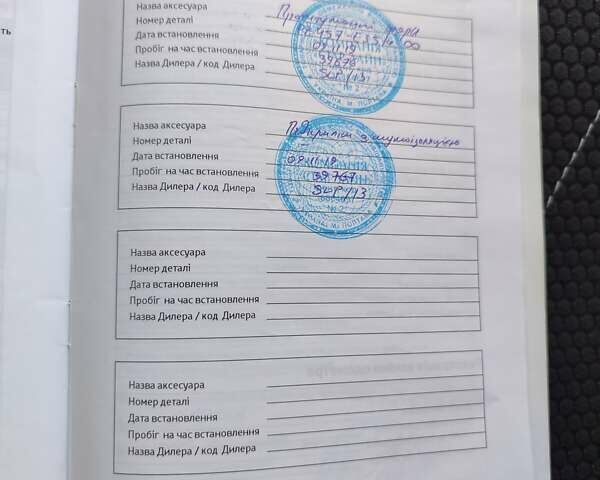 ть
Назва аксесуара Протитуманні фари
Номер деталі
Дата встановлення
Пробіг на час встановлення
Назва Дилера / код Дилера
№ 2
УКРАЇНА М. ПОЛТАВА
Назва аксесуара Підкрилки з шумоізоляцією
Номер деталі
Дата встановлення
Пробіг на час встановлення 39767
Назва Дилера / код Дилера
№ 2
УКРАЇНА М. ПОЛТАВА
Назва аксесуара
Номер деталі
Дата встановлення
Пробіг на час встановлення
Назва Дилера / код Дилера
Назва аксесуара
Номер деталі
Дата встановлення
Пробіг на час встановлення
Назва Дилера / код Дилера